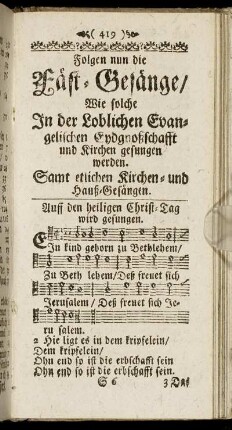 ( 419 )
Folgen nun die
Fäst-Gesänge/
Wie solche
In der Loblichen Evan-
gelischen Eydgnoßschafft
und Kirchen gesungen
werden.
Samt etlichen Kirchen- und
Hauß-Gesängen.
Auff den heiligen Christ-Tag
wird gesungen.
EIn kind geborn zu Bethlehem/
Zu Beth lehem/ Deß freuet sich
Jerusalem/ Deß freuet sich Je-
ru salem.
2 Hie ligt es in dem kripfelein/
Dem kripfelein/
Ohn end so ist die erbschafft sein
Ohn end so ist die erbschafft sein.
S 6 3 Das